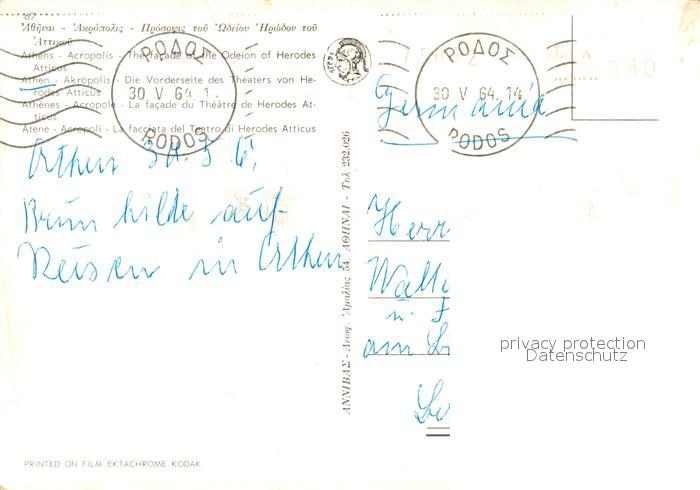 87
Ἀθῆναι - Ἀκρόπολις - Πρόσοψις τοῦ Ὠδείου Ἡρώδου τοῦ
Ἀττικοῦ
Athens - Acropolis - The façade of the Odeion of Herodes
Atticus
Athen - Akropolis - Die Vorderseite des Theaters von He-
rodes Atticus
Athènes - Acropole - La façade du Théâtre de Herodes At-
ticus
Atene - Acropoli - La facciata del Teatro di Herodes Atticus
ΡΟΔΟΣ
30 V 64 1
RODOS
ΡΟΔΟΣ
30 V 64. 14
RODOS
040
Germania
Athen 30.5.6
Brunhilde auf
Reisen in Athen
ΑΝΝΙΒΑΣ - Λεωφ. Ἀμαλίας 54, ΑΘΗΝΑΙ - Τηλ. 232.026
Herr
Walte
u.
am
privacy protection
Datenschutz
PRINTED ON FILM EKTACHROME KODAK